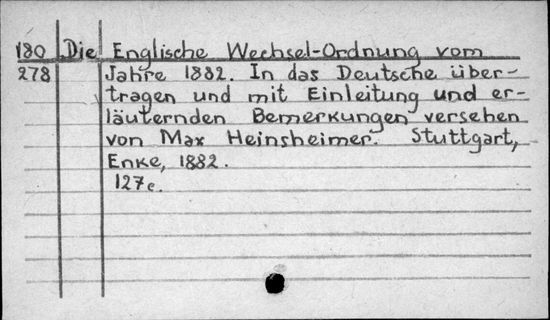 180 Die Englische Wechsel-Ordnung vom
278 Jahre 1882. In das Deutsche über-
tragen und mit Einleitung und er-
läuternden Bemerkungen versehen
von Max Heinsheimer. Stuttgart,
Enke, 1882.
127c.